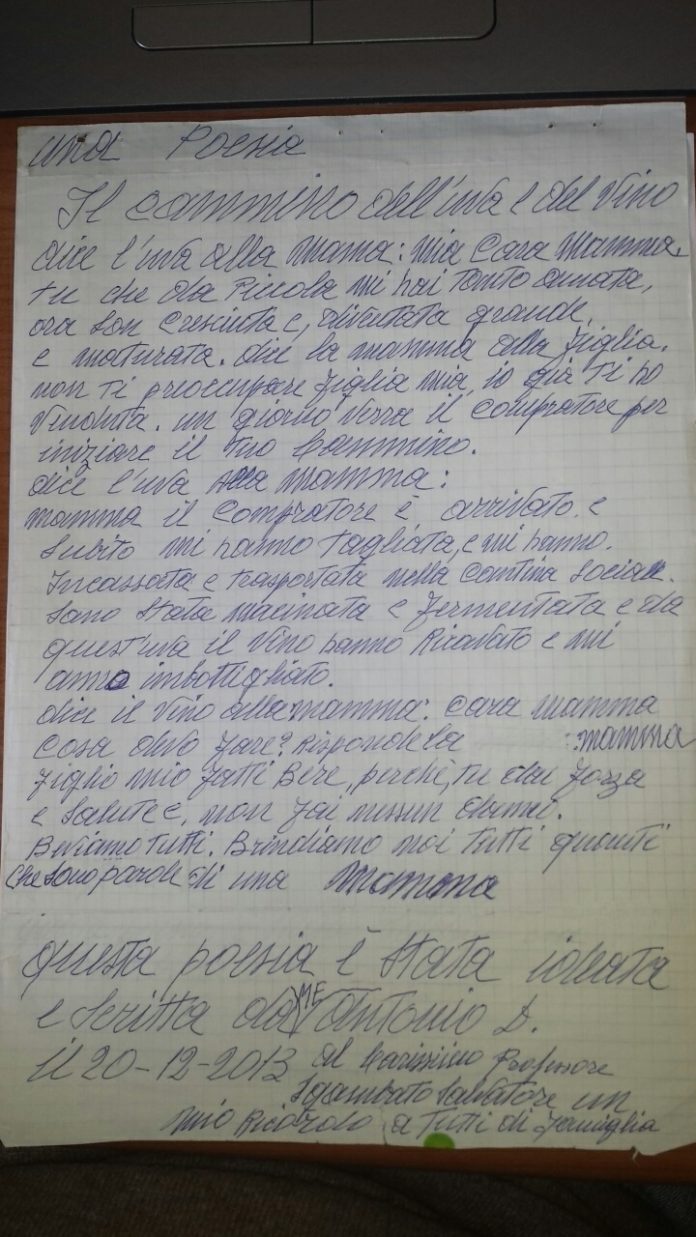 una Poesia
Il cammino dell'uva e del Vino
dice l'uva alla Mama: Mia Cara Mamma.
tu che da Piccola mi hai Tanto amata,
ora son Cresciuta e, diventata grande,
e maturata. dice la mamma alla figlia.
non Ti preoccupare figlia mia, io già Ti ho
Venduta. un giorno verra il, Compratore per
iniziare il Tuo Cammino.
dice l'uva alla Mamma:
mamma il Compratore è arrivato. e
Subito mi hanno tagliata, e mi hanno.
Incassata e trasportata nella Cantina Sociale.
Sono Stata macinata e fermentata e da
quest'uva il Vino hanno Ricavato e mi
anno imbottigliato.
dice il Vino alla mamma: Cara mamma
Cosa devo fare? Risponde la : mamma
figlio mio fatti Bere, perchè, tu dai forza
e Salute e, non fai nessun danni.
Beviamo Tutti. Brindiamo noi Tutti quanti
Che Sono parole di una Mamma
questa poesia è Stata ideata
e Scritta da ME Antonio D.
il 20-12-2013 al Carissimo Professore
Sgambato Salvatore un
mio Ricordo a Tutti di famiglia